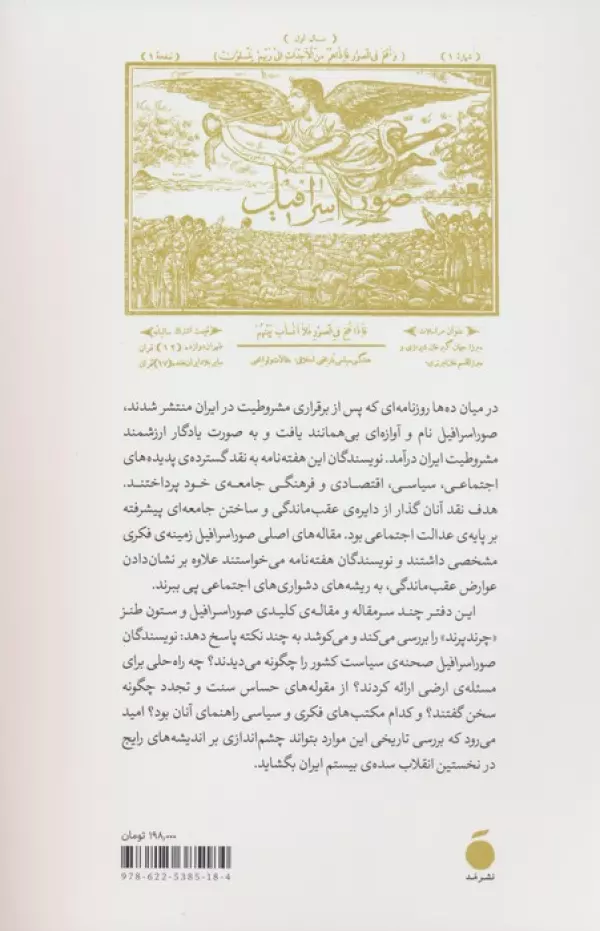 ( سال اول )
( شمارهٔ ۱ )
( صفحهٔ ۱ )
صور اسرافیل
عنوان مراسلات
میرزا جهانگیر خان شیرازی و
میرزا قاسم خان تبریزی
قیمت اشتراک سالیانه
طهران دوازده (۱۲) قران
در میان ده‌ها روزنامه‌ای که پس از برقراری مشروطیت در ایران منتشر شدند،
صوراسرافیل نام و آوازه‌ای بی‌همانند یافت و به صورت یادگار ارزشمند
مشروطیت ایران درآمد. نویسندگان این هفته‌نامه به نقد گسترده‌ی پدیده‌های
اجتماعی، سیاسی، اقتصادی و فرهنگی جامعه‌ی خود پرداختند.
هدف نقد آنان گذار از دایره‌ی عقب‌ماندگی و ساختن جامعه‌ای پیشرفته
بر پایه‌ی عدالت اجتماعی بود. مقاله‌های اصلی صوراسرافیل زمینه‌ی فکری
مشخصی داشتند و نویسندگان هفته‌نامه می‌خواستند علاوه بر نشان‌دادن
عوارض عقب‌ماندگی، به ریشه‌های دشواری‌های اجتماعی پی ببرند.
این دفتر چند سرمقاله و مقاله‌ی کلیدی صوراسرافیل و ستون طنز
«چرندپرند» را بررسی می‌کند و می‌کوشد به چند نکته پاسخ دهد: نویسندگان
صوراسرافیل صحنه‌ی سیاست کشور را چگونه می‌دیدند؟ چه راه‌حلی برای
مسئله‌ی ارضی ارائه کردند؟ از مقوله‌های حساس سنت و تجدد چگونه
سخن گفتند؟ و کدام مکتب‌های فکری و سیاسی راهنمای آنان بود؟ امید
می‌رود که بررسی تاریخی این موارد بتواند چشم‌اندازی بر اندیشه‌های رایج
در نخستین انقلاب سده‌ی بیستم ایران بگشاید.
۱۹۸,۰۰۰ تومان
978-622-5385-18-4
نشر مُد